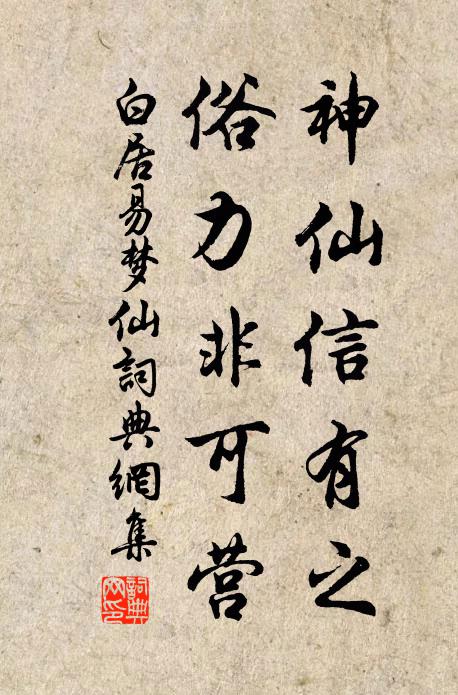 神仙信有之
俗力非可营
白居易梦仙詞典網集
詞典网印